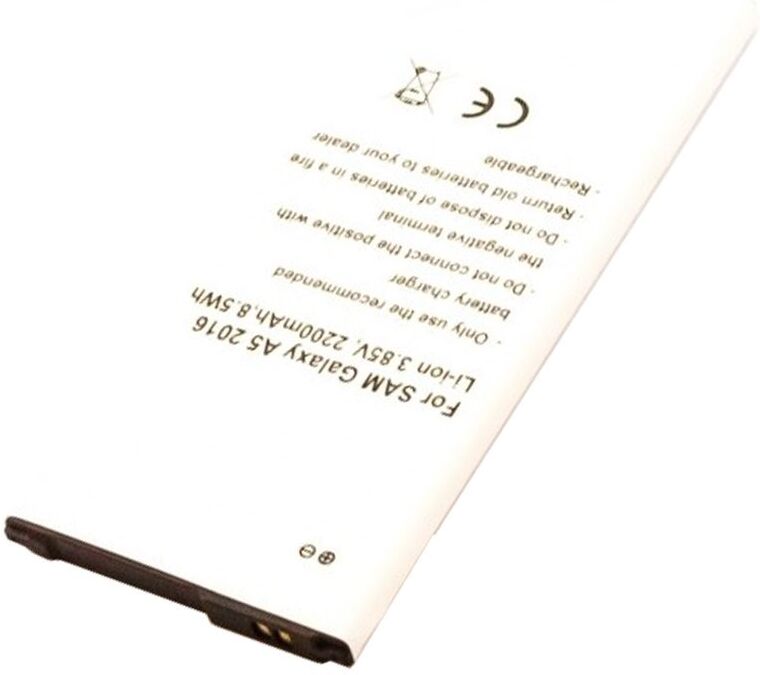 For SAM Galaxy A5 2016
Li-Ion 3.85V, 2200mAh,8.5Wh
· Only use the recommended
battery charger
· Do not connect the positive with
the negative terminal
· Do not dispose of batteries in a fire
· Return old batteries to your dealer
· Rechargeable
CE